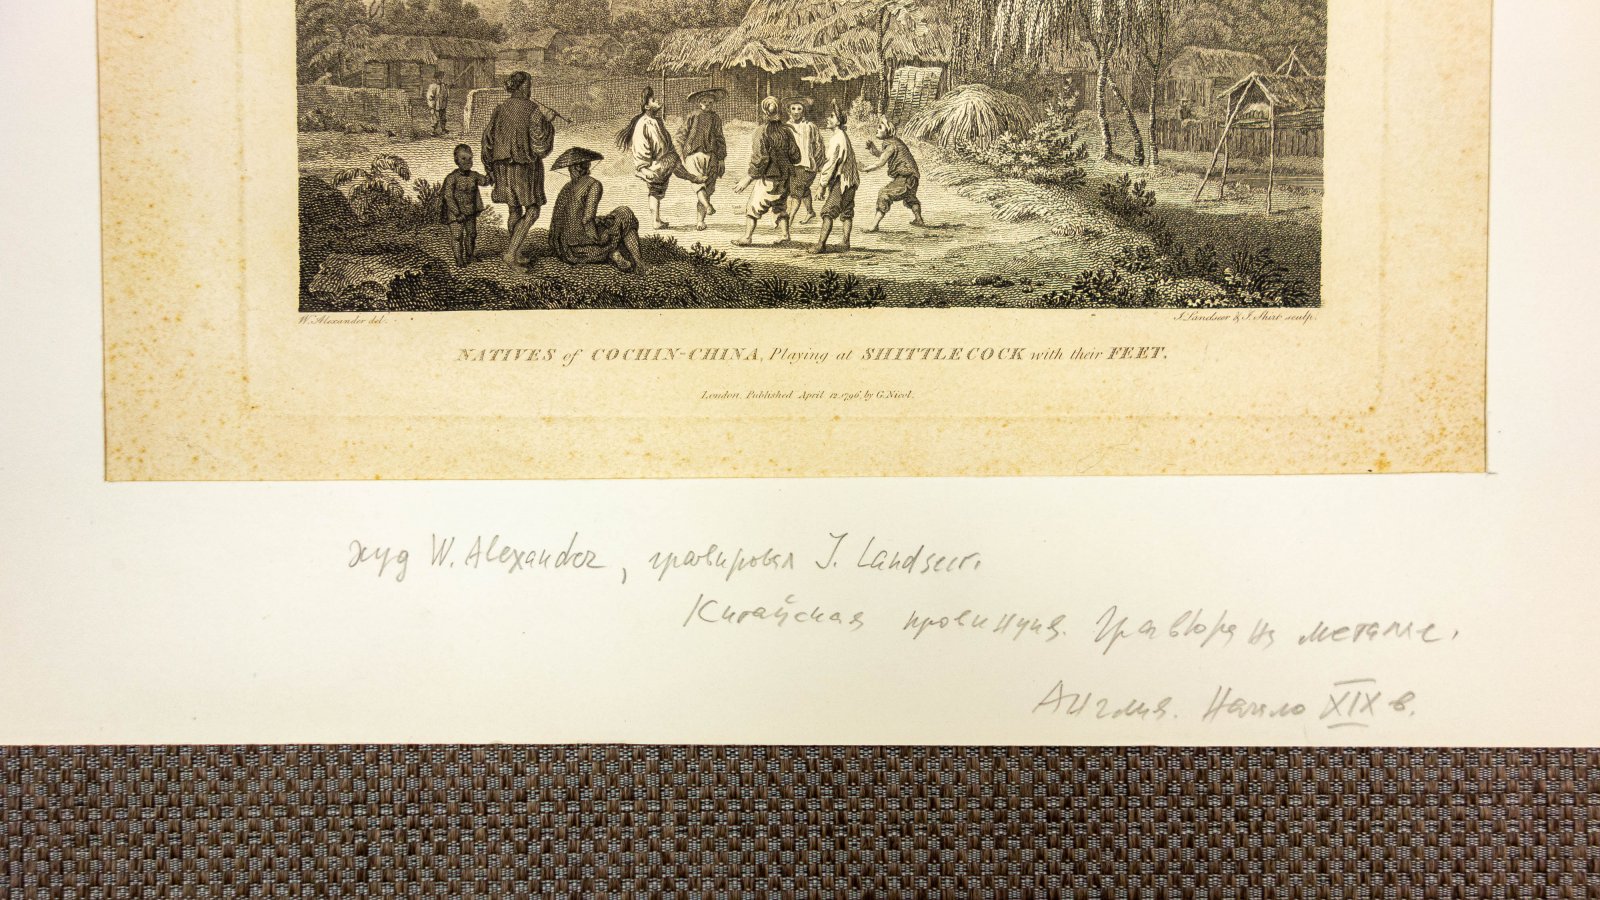 W. Alexander del.
J. Landseer & J. Shirt sculp.
NATIVES of COCHIN-CHINA, Playing at SHITTLECOCK with their FEET.
London, Published April 12, 1796, by G. Nicol.
худ W. Alexander, гравировал J. Landseer.
Китайская провинция. Гравюра на металле.
Англия. Начало XIX в.